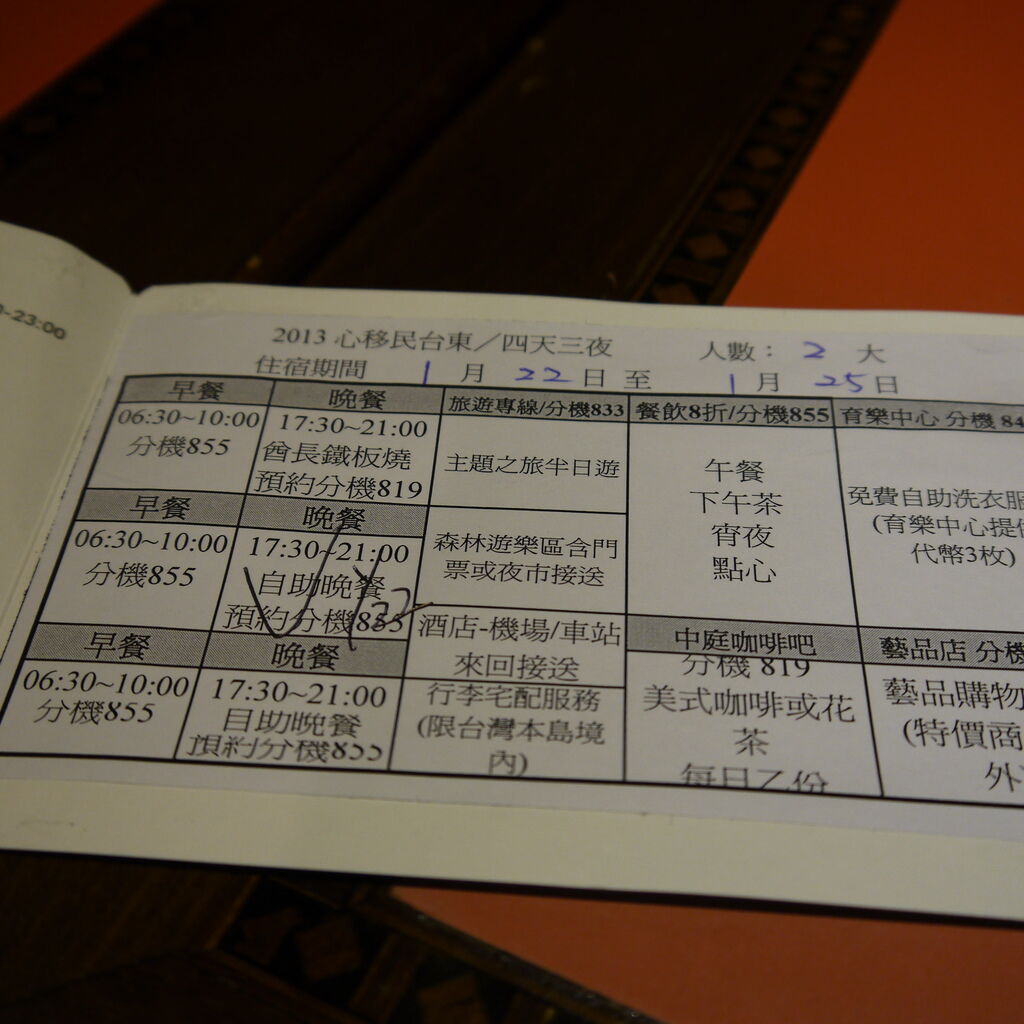 -23:00
2013 心移民台東／四天三夜
人數： 2 大
住宿期間 1 月 22 日 至 1 月 25 日
早餐
06:30~10:00
分機855
晚餐
17:30~21:00
酋長鐵板燒
預約分機819
早餐
06:30~10:00
分機855
晚餐
17:30~21:00
自助晚餐
預約分機855
早餐
06:30~10:00
分機855
晚餐
17:30~21:00
自助晚餐
預約分機855
旅遊專線/分機833
主題之旅半日遊
森林遊樂區含門
票或夜市接送
酒店-機場/車站
來回接送
行李宅配服務
(限台灣本島境
內)
餐飲8折/分機855
午餐
下午茶
宵夜
點心
中庭咖啡吧
分機 819
美式咖啡或花
茶
每日乙份
育樂中心 分機 84
免費自助洗衣服
(育樂中心提供
代幣3枚)
藝品店 分機
藝品購物
(特價商
外